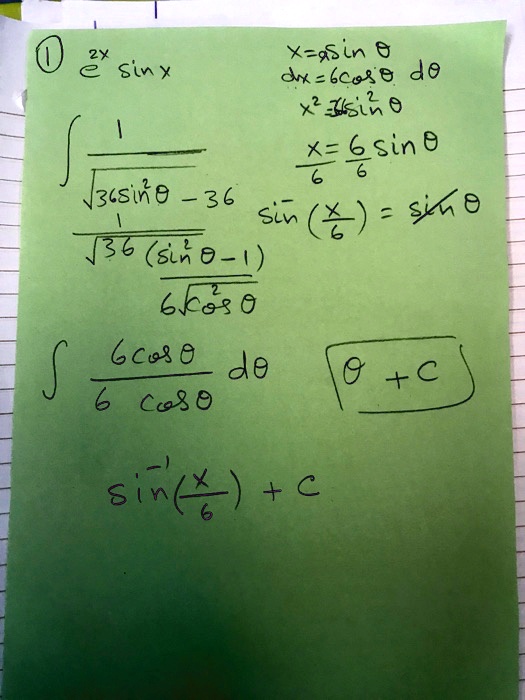 ① e^2x sin x
x=asin θ
dx = 6cosθ dθ
x² = 36sin²θ
∫ 1/√36sin²θ - 36
x/6 = 6/6 sin θ
1/√36 (sin²θ-1)
sin⁻(x/6) = sin θ
6√cos²θ
∫ 6cosθ/6 cosθ dθ
θ + c
sin⁻¹(x/6) + c